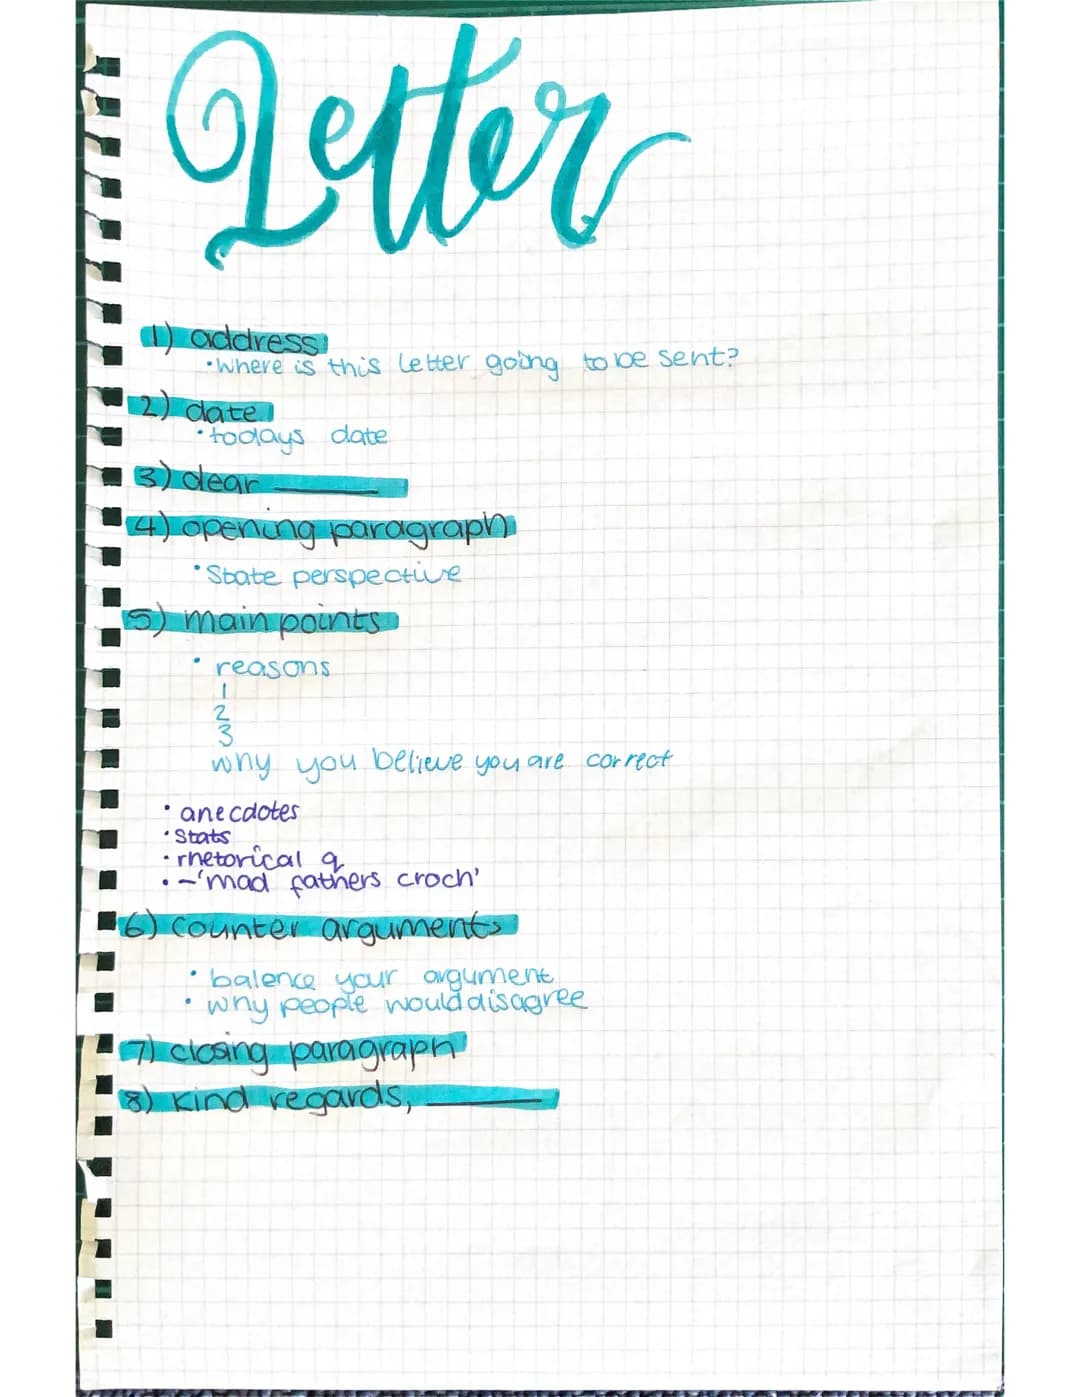 Letter
1) address
•Where is this letter going to be sent?
2) date
•todays date
3) dear ______
4) opening paragraph
•State perspective
5) main points
• reasons
1
2
3
why you believe you are correct
• anecdotes
•Stats
•rhetorical q
•~'mad fathers croch'
6) counter arguments
• balence your argument
• why people would disagree
7) closing paragraph
8) kind regards, ______